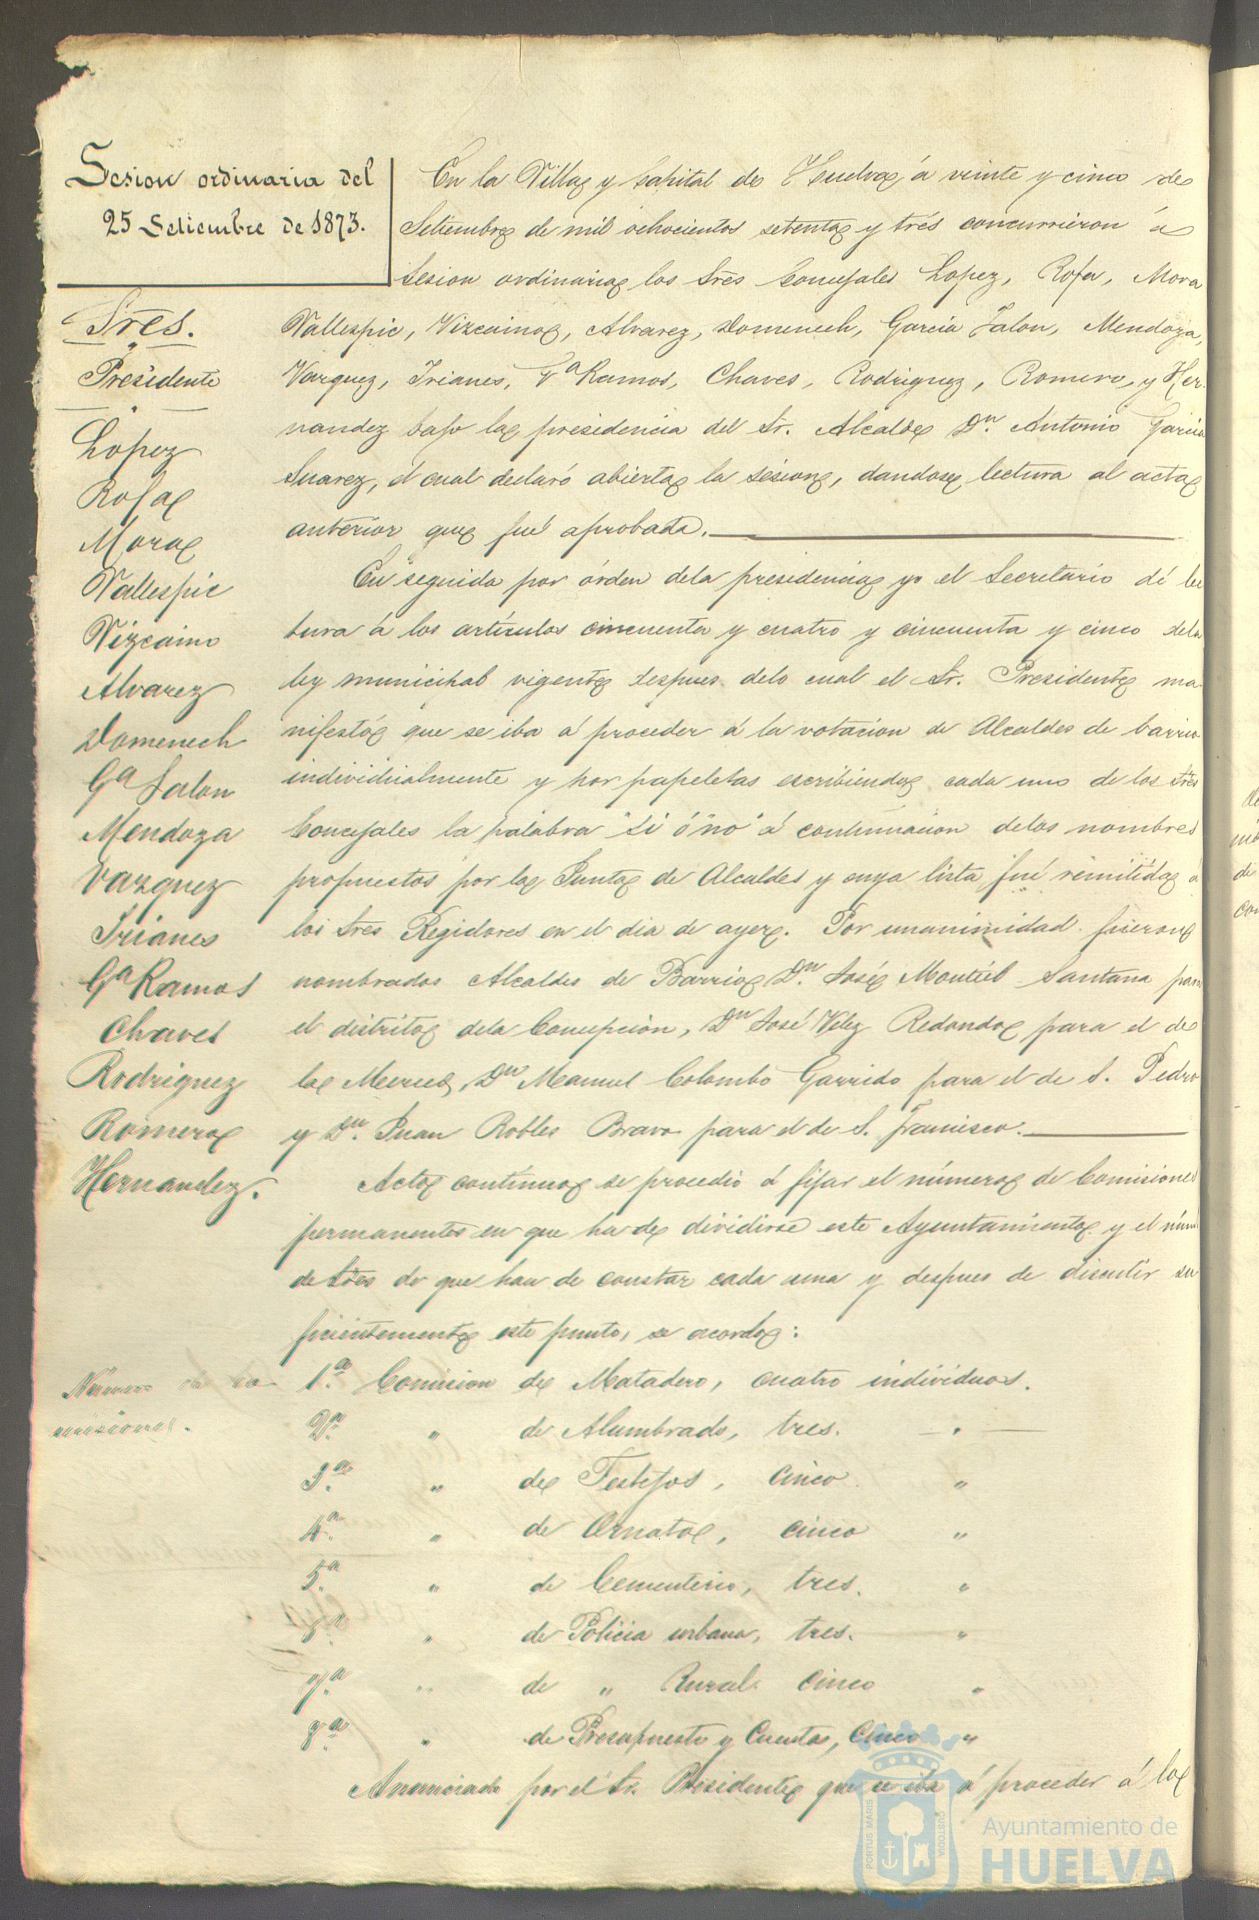 Sesion ordinaria del
25 Setiembre de 1873.
Sres.
Presidente
Lopez
Rofa
Mora
Vallespic
Vizcaino
Alvarez
Domenech
Gª Jalon
Mendoza
Vazquez
Trianes
Gª Ramos
Chaves
Rodriguez
Romero
Hernandez.
Número de Co
misiones.
En la Villa y Capital de Huelva á veinte y cinco de
Setiembre de mil ochocientos setenta y trés concurrieron á
Sesion ordinaria los Sres Concejales Lopez, Rofa, Mora
Vallespic, Vizcaino, Alvarez, Domenech, Garcia Jalon, Mendoza,
Vazquez, Trianes, Gª Ramos, Chaves, Rodriguez, Romero, y Her-
nandez bajo la presidencia del Sr. Alcalde Dn. Antonio Garcia
Suarez, el cual declaró abierta la sesion, dandose lectura al acta
anterior que fué aprobada.
En seguida por órden dela presidencia yo el Secretario dí lec
tura á los artículos cincuenta y cuatro y cincuenta y cinco dela
ley municipal vigente despues delo cual el Sr. Presidente ma-
nifestó que se iba á proceder á la votacion de Alcaldes de barrio
individualmente y por papeletas escribiendo cada uno de los Sres
Concejales la palabra "Si ó no" á continuacion delos nombres
propuestos por la Junta de Alcaldes y cuya lista fué remitida á
los Sres Regidores en el dia de ayer. Por unanimidad fueron
nombrados Alcaldes de Barrio Dn. José Montiel Santana para
el distrito dela Concepcion, Dn José Velez Redondo para el de
la Merced, Dn Manuel Colombo Garrido para el de S. Pedro
y Dn. Juan Robles Bravo para el de S. Francisco.
Acto continuo se procedió á fijar el número de Comisiones
permanentes en que ha de dividirse este Ayuntamiento y el núm
de Sres de que han de constar cada una y despues de discutir su
ficientemente este punto, se acordo:
1.ª Comision de Matadero, cuatro individuos.
2.ª " de Alumbrado, tres. "
3.ª " de Festejos, cinco "
4.ª " de Ornato, cinco "
5.ª " de Cementerio, tres. "
6.ª " de Policia urbana, tres. "
7.ª " de " Rural cinco "
8.ª " de Presupuesto y Cuentas, cinco "
Anunciado por el Sr. Presidente que se iba á proceder á la
PORTUS MARIS CUSTODIA
Ayuntamiento de
HUELVA